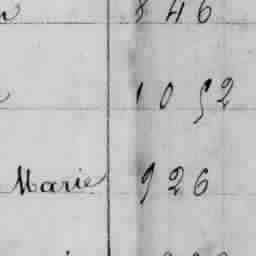 846
1052
Marie 926